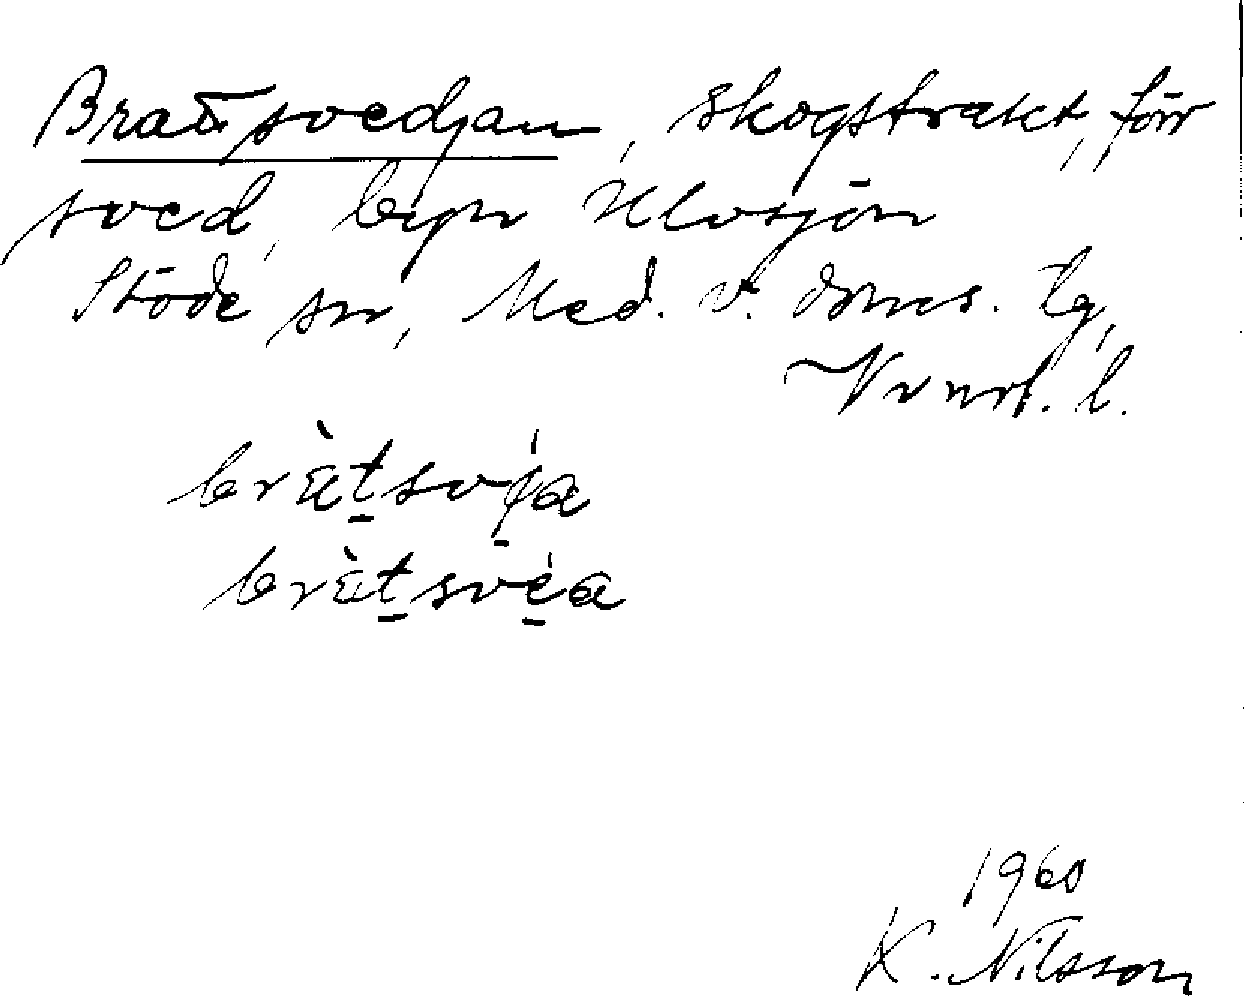 Bratsvedjan, skogstrakt, förr
sved, byn Ulvsjön
Stöde sn, Med. v. doms. lg,
Vvnrl. l.
brèt̠své̠a
1960
K. Nilsson